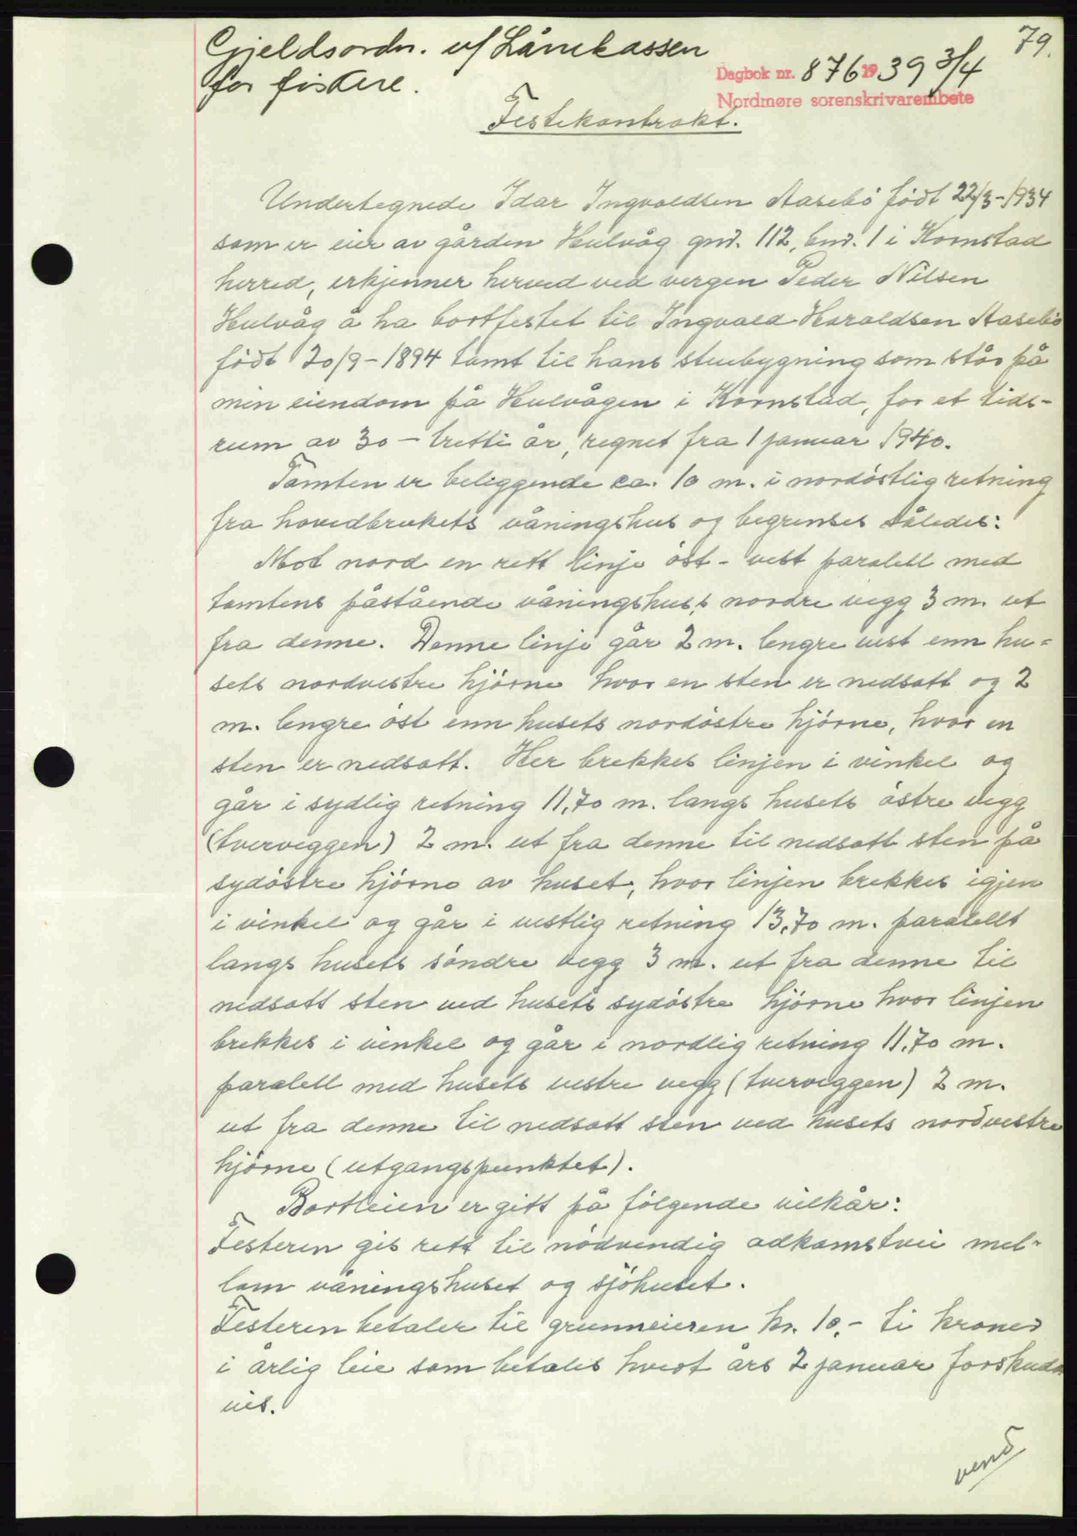 79.
Gjeldsordn. v/ Lånekassen
for fiskere.
Dagbok nr. 876 1939 3/4
Nordmøre sorenskrivarembete
Festekontrakt.
Undertegnede Idar Ingvaldsen Aasebö födt 22/3-1934
som er eier av gården Hulvåg gnr. 112, bnr. 1 i Kornstad
herred, erkjenner herved ved vergen Peder Nilsen
Hulvåg å ha bortfestet til Ingvald Haraldsen Aasebö
födt 20/9-1894 tomt til hans stuebygning som står på
min eiendom på Hulvågen i Kornstad, for et tids-
rum av 30 - tretti år, regnet fra 1 januar 1940.
Tomten er beliggende ca. 10 m. i nordöstlig retning
fra hovedbrukets våningshus og begrenses således:
Mot nord en rett linje öst - vest paralell med
tomtens påstående våningshuss nordre vegg 3 m. ut
fra denne. Denne linje går 2 m. lengre vest enn hu-
sets nordvestre hjörne hvor en sten er nedsatt og 2
m. lengre öst enn husets nordöstre hjörne, hvor en
sten er nedsatt. Her brekkes linjen i vinkel og
går i sydlig retning 11,70 m. langs husets östre vegg
(tverveggen) 2 m. ut fra denne til nedsatt sten på
sydöstre hjörne av huset, hvor linjen brekkes igjen
i vinkel og går i vestlig retning 13,70 m. paralellt
langs husets söndre vegg 3 m. ut fra denne til
nedsatt sten ved husets sydöstre hjörne hvor linjen
brekkes i vinkel og går i nordlig retning 11,70 m.
paralell med husets vestre vegg (tverveggen) 2 m.
ut fra denne til nedsatt sten ved husets nordvestre
hjörne (utgangspunktet).
Bortleien er gitt på fölgende vilkår:
Festeren gis rett til nödvendig adkomstvei mel-
lom våningshuset og sjöhuset.
Festeren betaler til grunneieren kr. 10,- ti kroner
i årlig leie som betales hvert års 2 januar forskudds
vis.
vend